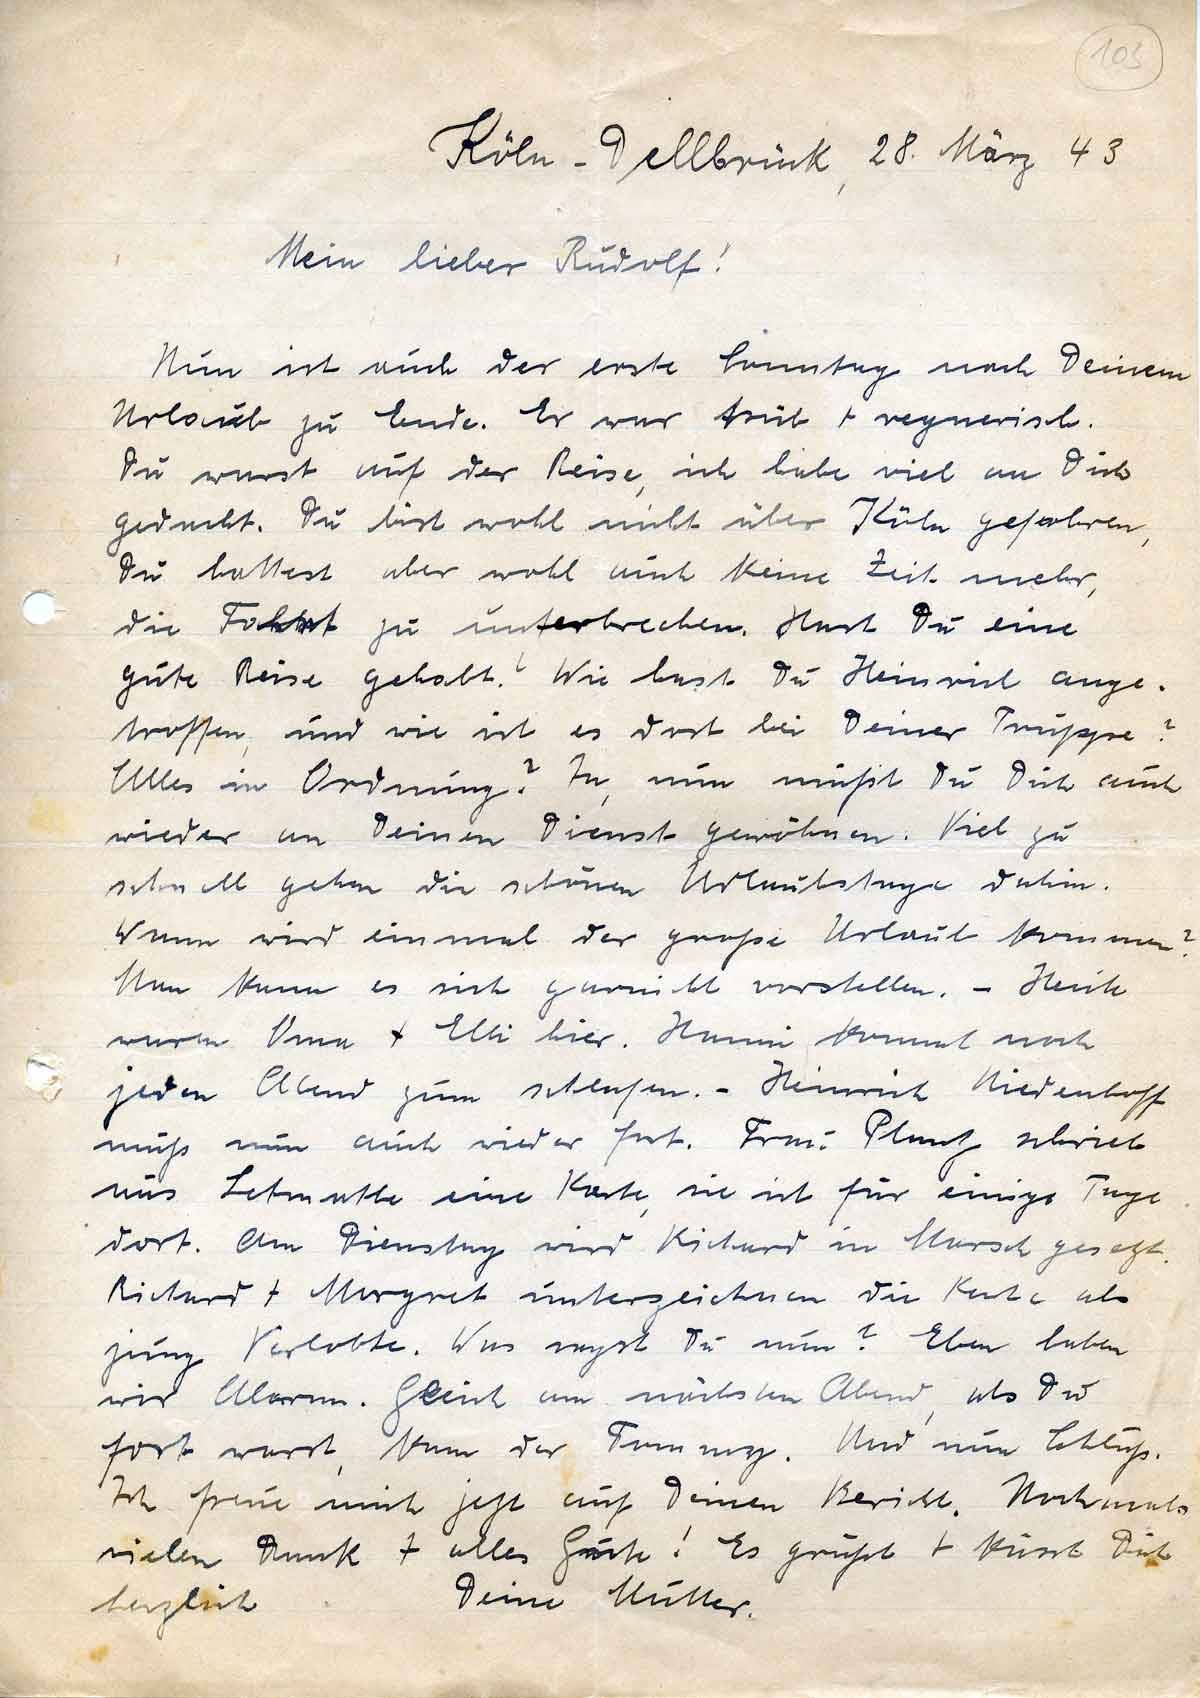 103
Köln-Dellbrück, 28. März 43
Mein lieber Rudolf!
Nun ist auch der erste Sonntag nach Deinem
Urlaub zu Ende. Er war trüb + regnerisch.
Du warst auf der Reise, ich habe viel an Dich
gedacht. Du bist wohl nicht über Köln gefahren,
Du hattest aber wohl auch keine Zeit mehr,
die Fahrt zu unterbrechen. Hast Du eine
gute Reise gehabt? Wie hast Du Heinrich ange-
troffen, und wie ist es dort bei Deiner Truppe?
Alles in Ordnung? Ja, nun mußt Du Dich auch
wieder an Deinen Dienst gewöhnen. Viel zu
schnell gehen die schönen Urlaubstage dahin.
Wann wird einmal der große Urlaub kommen?
Man kann es sich garnicht vorstellen. - Heute
waren Oma + Elli hier. Hanni kommt noch
jeden Abend zum schlafen. - Heinrich Niedenhoff
muß nun auch wieder fort. Frau Plantz schrieb
aus Letmathe eine Karte, sie ist für einige Tage
dort. Am Dienstag wird Richard in Marsch gesetzt.
Richard + Margret unterzeichnen die Karte als
jung Verlobte. Was sagst Du nun? Eben haben
wir Alarm. Gleich am nächsten Abend, als Du
fort warst, kam der Tommy. Und nun Schluß.
Ich freue mich jetzt auf Deinen Bericht. Nochmals
vielen Dank + alles Gute! Es grüßt + küsst Dich
herzlich Deine Mutter.